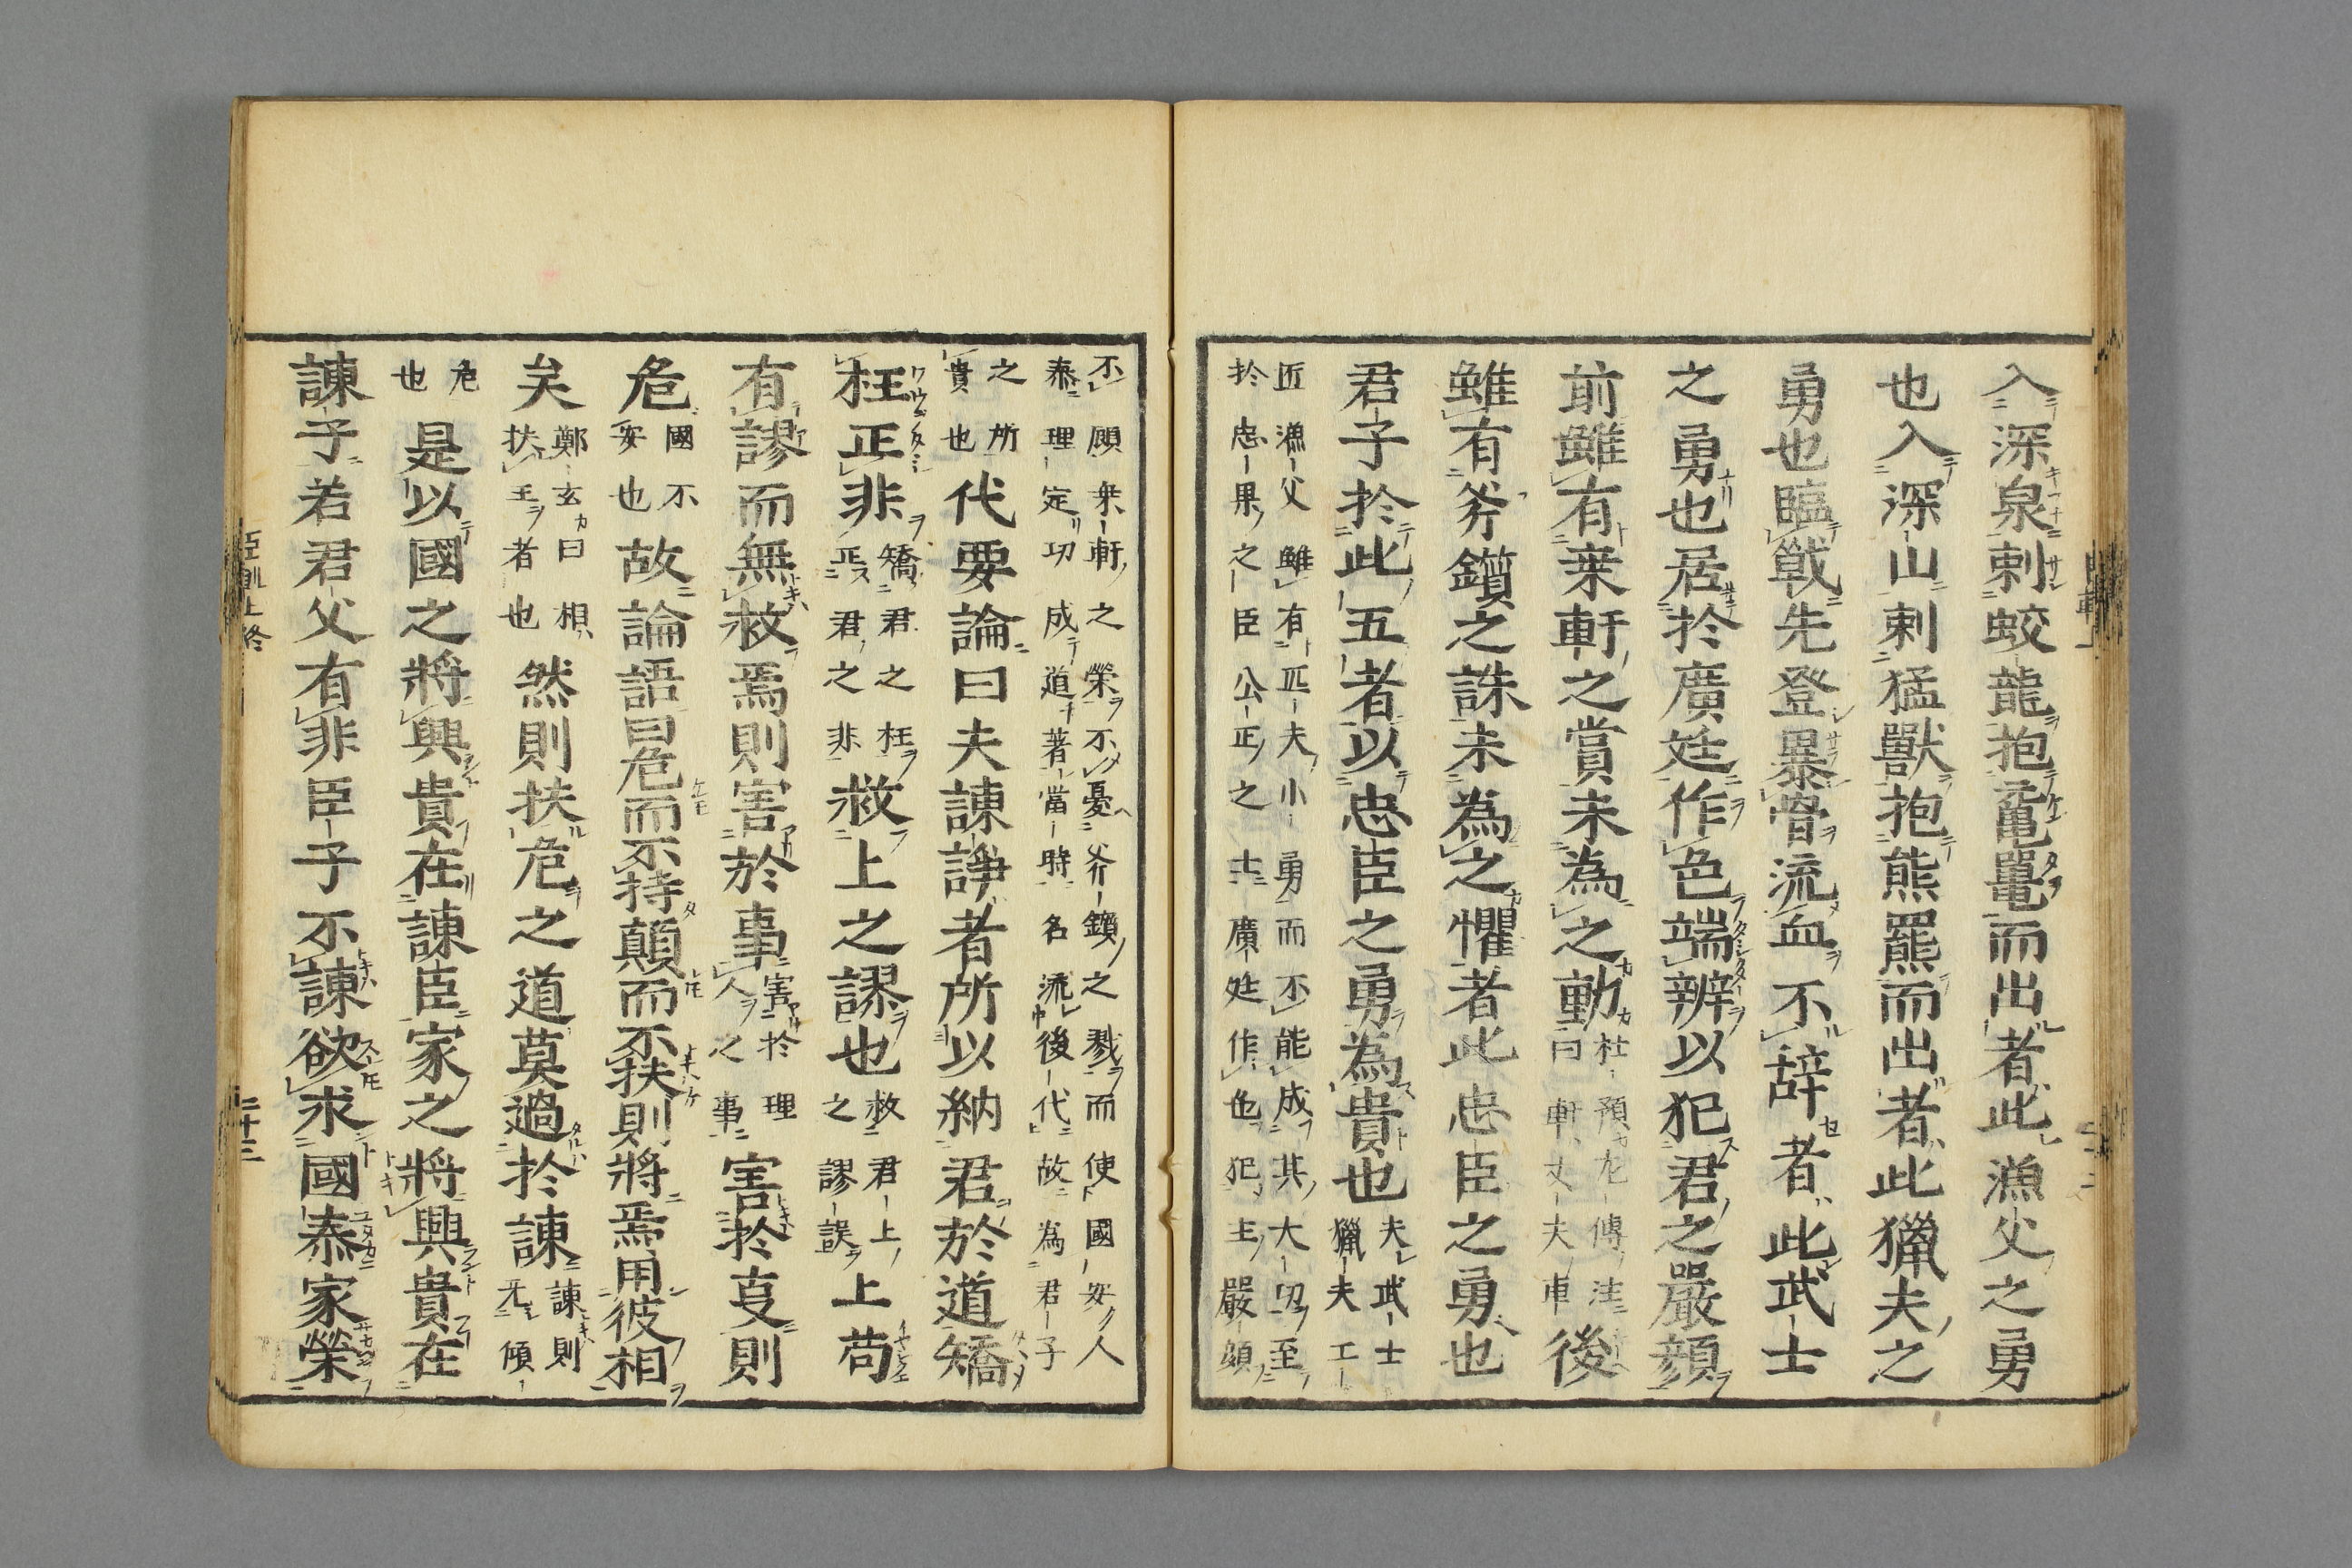 入深泉剌蛟龍抱黿鼉而出者此漁父之勇
也入深山剌猛獸抱熊羆而出者此獵夫之
勇也臨戰先登暴骨流血不辞者此武士
之勇也居於廣廷作色端辨以犯君之嚴顔
前雖有乗軒之賞未為之動杜預左傳注曰軒大夫車後
雖有斧鑕之誅未為之懼者此忠臣之勇也
君子於此五者以忠臣之勇為貴也夫武士獵夫工
匠漁父雖有匹夫小勇而不能成其大功至
於忠果之臣公正之士廣廷作色犯主嚴顔
不顧乗軒之榮不憂斧鑕之戮而使國安人
泰理定功成道著當時名流後代故為君子
之所貴也代要論曰夫諫諍者所以納君於道矯
枉正非矯君之枉正君之非救上之謬也救君上之謬誤上苟
有謬而無救焉則害於事害於理人之事害於㕝則
危國不安也故論語曰危而不持顛而不扶則將焉用彼相
矣鄭玄曰相扶王者也然則扶危之道莫過於諫諫則无傾
危也是以國之將興貴在諫臣家之將興貴在
諫子若君父有非臣子不諫欲求國泰家榮
臣軌上終
二十三